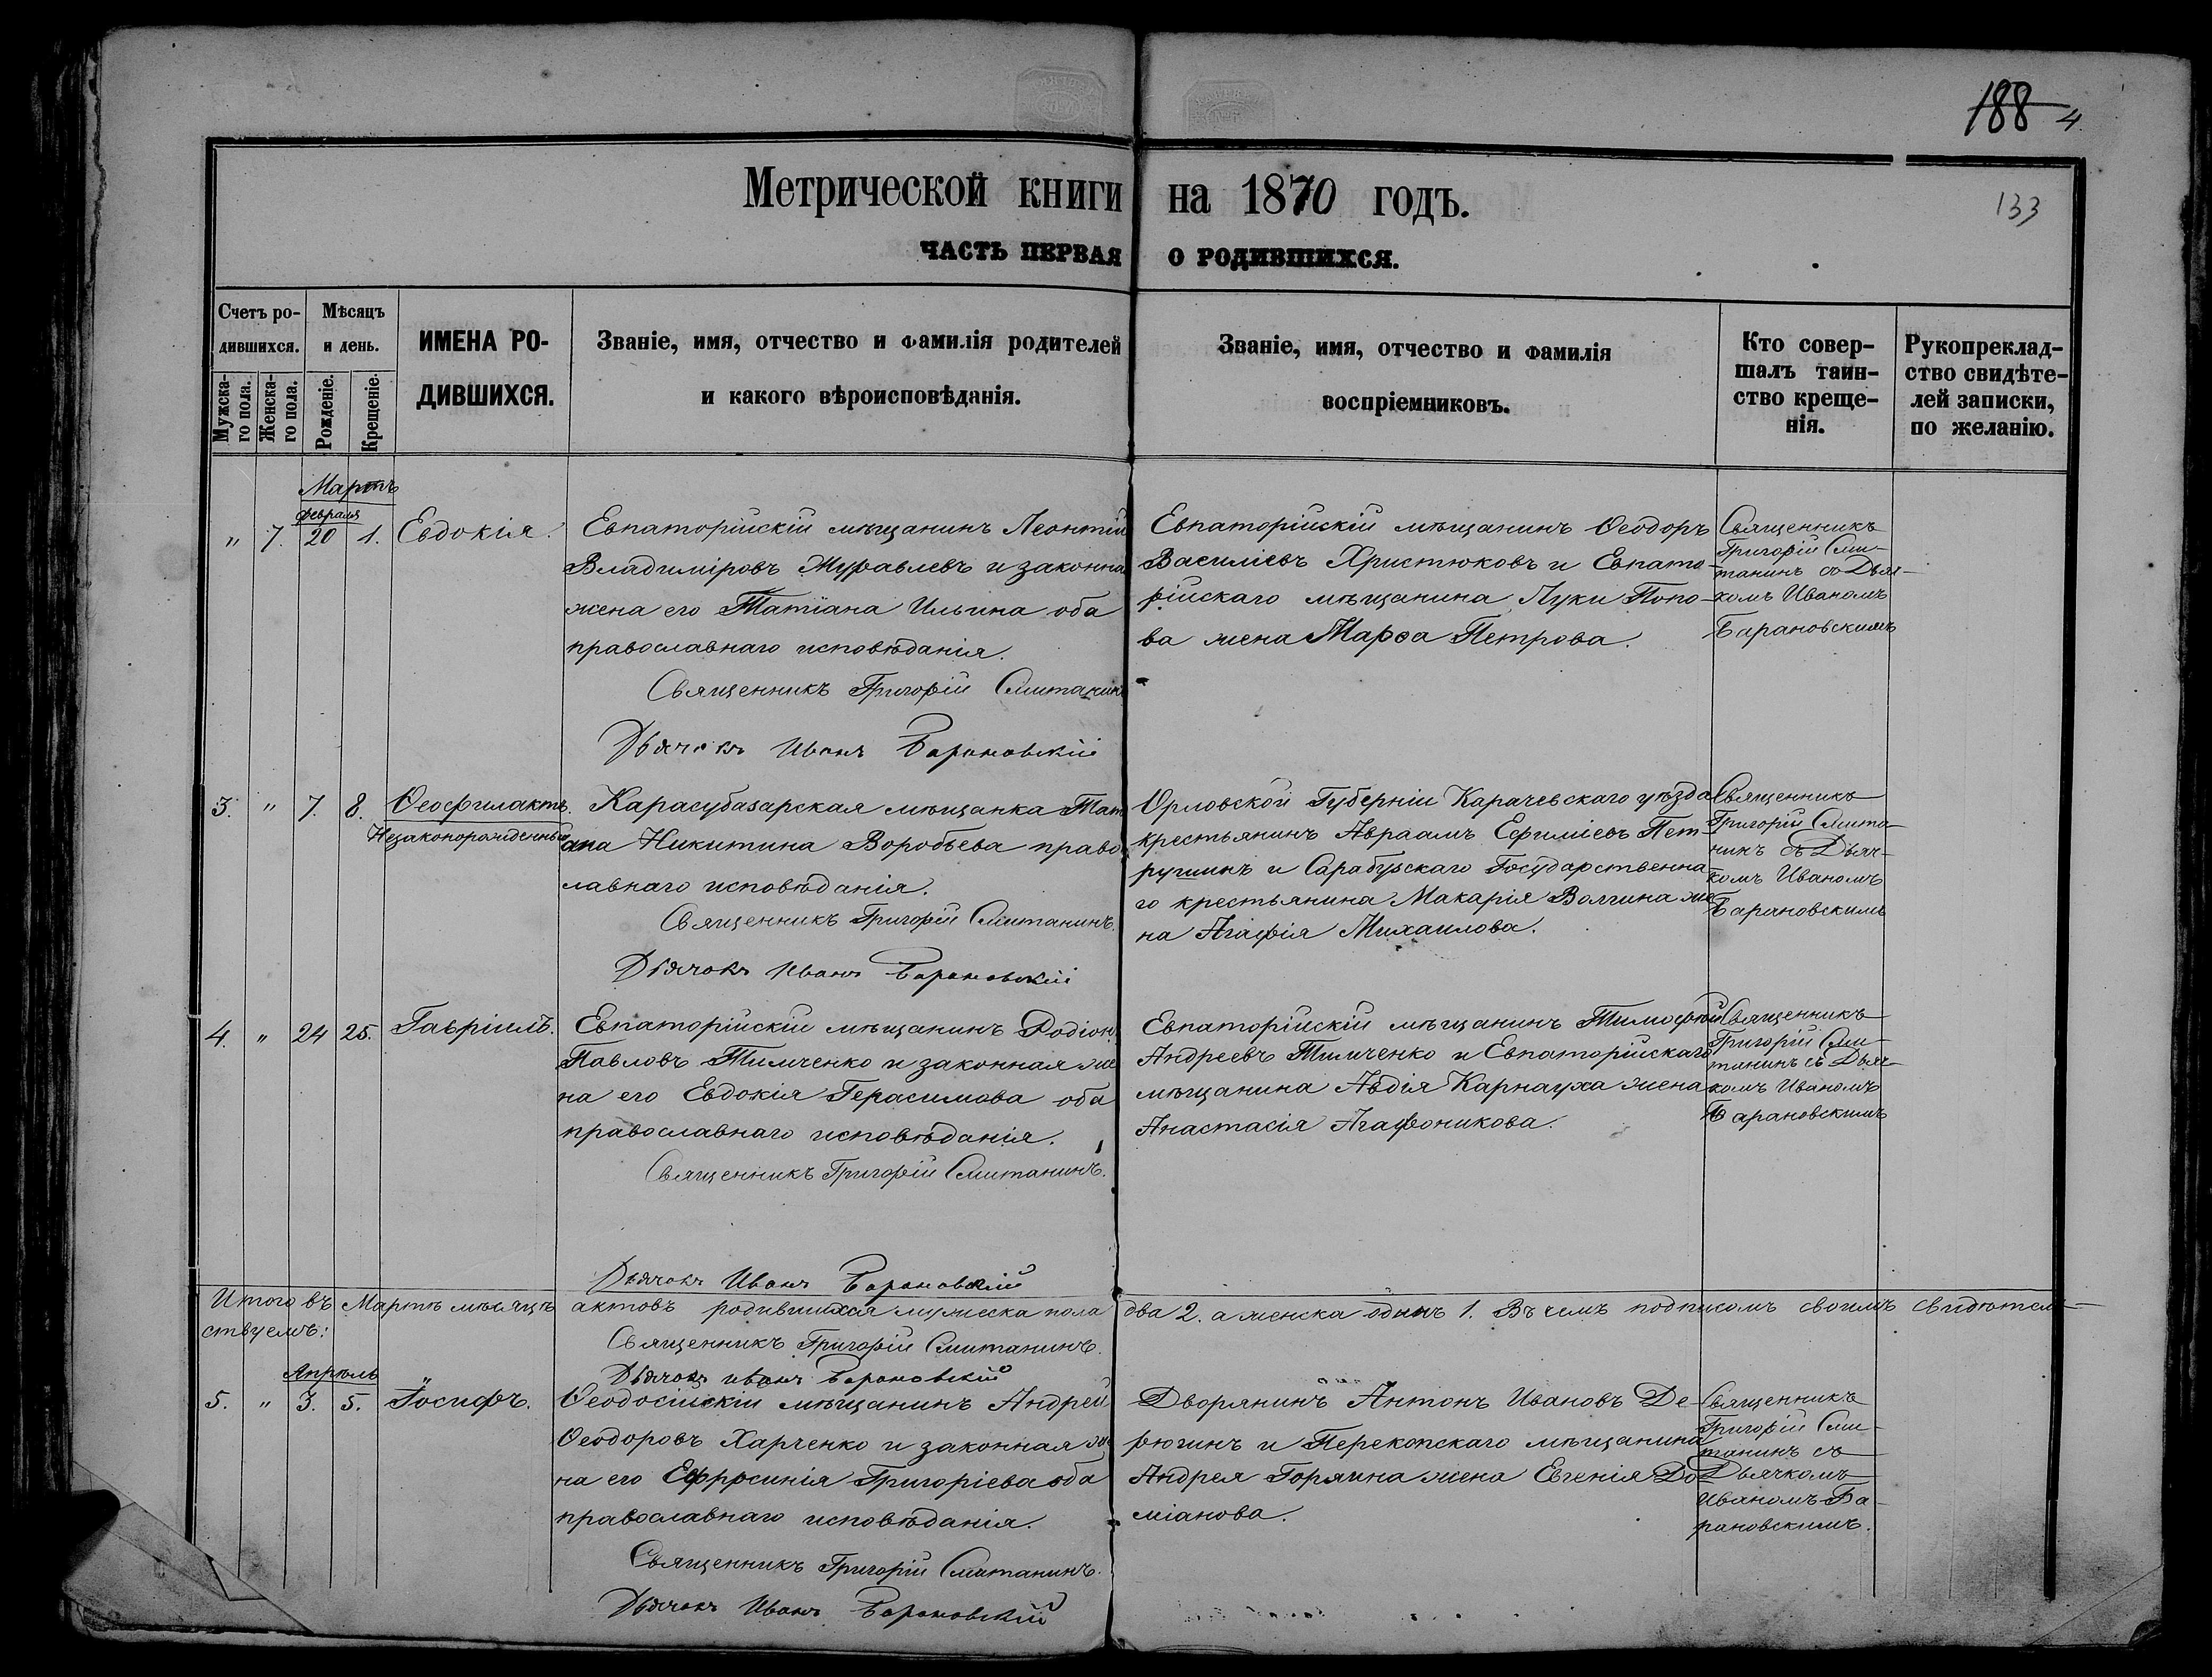 188 4.
Метрической книги на 1870 годъ.
133
ЧАСТЬ ПЕРВАЯ О РОДИВШИХСЯ.
Счетъ ро-
дившихся.
Мужска-
го пола.
Женска-
го пола.
Мѣсяцъ
и день.
Рожденіе.
Крещеніе.
ИМЕНА РО-
ДИВШИХСЯ.
Званіе, имя, отчество и фамилія родителей
и какого вѣроисповѣданія.
Званіе, имя, отчество и фамилія
воспріемниковъ.
Кто совер-
шалъ таин-
ство креще-
нія.
Рукопреклад-
ство свидѣте-
лей записки,
по желанію.
Мартъ
Февраля
" 7. 20 1. Евдокія.
Евпаторійскій мѣщанинъ Леонтій
Владиміровъ Муравлевъ и законна
жена его Татіана Ильина оба
православнаго исповѣданія.
Священникъ Григорій Смитанинъ
Дьячокъ Иванъ Барановскій
Евпаторійскій мѣщанинъ Ѳеодоръ
Василіевъ Христюковъ и Евпато-
рійскаго мѣщанина Луки Попо-
ва жена Марѳа Петрова.
Священникъ
Григорій Сми-
танинъ съ Дьяч-
комъ Иваномъ
Барановскимъ
3. " 7. 8. Ѳеофилактъ.
Незаконорожденный
Карасубазарская мѣщанка Тат
ана Никитина Воробьева право
лавнаго исповѣданія.
Священникъ Григорій Смитанинъ.
Дьячокъ Иванъ Барановскій
Орловской Губерніи Карачевскаго уѣзда
крестьянинъ Авраамъ Ефиміевъ Пет-
рушинъ и Сарабузскаго Государственна-
го крестьянина Макарія Волгина же-
на Агафія Михаилова.
Священникъ
Григорій Смита-
нинъ съ Дьяч-
комъ Иваномъ
Барановскимъ
4. " 24 25. Гавріилъ.
Евпаторійскій мѣщанинъ Родіонъ
Павловъ Тимченко и законная же
на его Евдокія Герасимова оба
православнаго исповѣданія.
Священникъ Григорій Смитанинъ.
Дьячокъ Иванъ Барановскій
Евпаторійскій мѣщанинъ Тимофей
Андреевъ Тимченко и Евпаторійскаго
мѣщанина Авдія Карнауха жена
Анастасія Агафоникова.
Священникъ
Григорій Сми-
танинъ съ Дьяч-
комъ Иваномъ
Барановскимъ
Итого въ Мартѣ мѣсяцѣ актовъ родившихся мужеска пола два 2. а женска одинъ 1. Въ чемъ подписомъ своимъ свидѣтель-
ствуемъ:
Священникъ Григорій Смитанинъ.
Дьячокъ Иванъ Барановскій
Апрѣль
5. " 3. 5. Іосифъ.
Ѳеодосійскій мѣщанинъ Андрей
Ѳеодоровъ Харченко и законная же
на его Ефросинія Григоріева оба
православнаго исповѣданія.
Священникъ Григорій Смитанинъ.
Дьячокъ Иванъ Барановскій
Дворянинъ Антонъ Ивановъ Де-
рюгинъ и Перекопскаго мѣщанина
Андрея Горяина жена Евгенія До-
міанова.
Священникъ
Григорій Сми-
танинъ съ
Дьячкомъ
Иваномъ Ба-
рановскимъ.